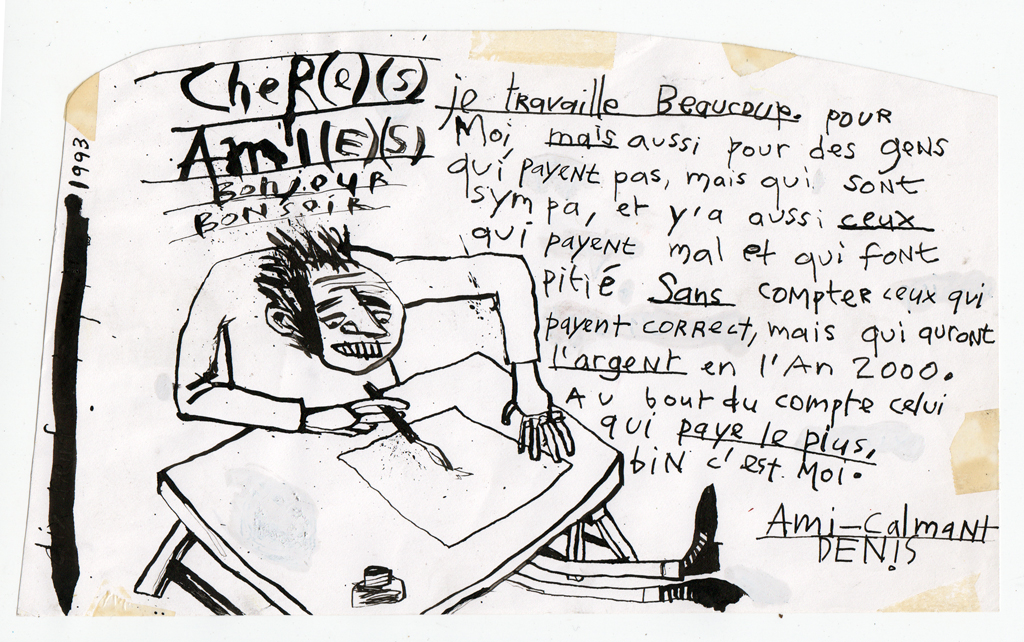 1993
CheR(e)(s)
Ami(E)(s)
BonjouR
BonsoiR
je travaille Beaucoup. pouR
Moi mais aussi pour des gens
qui payent pas, mais qui sont
sympa, et y'a aussi ceux
qui payent mal et qui font
pitié Sans compter ceux qui
payent correct, mais qui auront
l'argent en l'An 2000.
Au bout du compte celui
qui paye le plus,
biN c'est Moi.
Ami-Calmant
DENiS